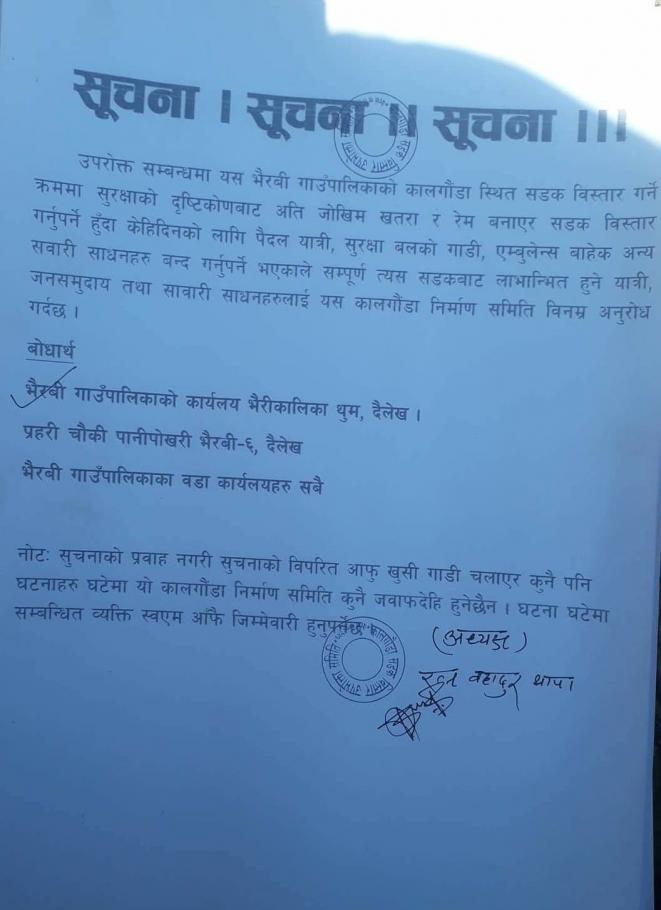 सूचना । सूचना ।। सूचना ।।।
उपरोक्त सम्बन्धमा यस भैरबी गाउँपालिकाको कालगौंडा स्थित सडक विस्तार गर्ने
क्रममा सुरक्षाको दृष्टिकोणबाट अति जोखिम खतरा र रेम बनाएर सडक विस्तार
गर्नुपर्ने हुँदा केहिदिनको लागि पैदल यात्री, सुरक्षा बलको गाडी, एम्बुलेन्स बाहेक अन्य
सवारी साधनहरु बन्द गर्नुपर्ने भएकाले सम्पूर्ण त्यस सडकबाट लाभान्भित हुने यात्री,
जनसमुदाय तथा सावारी साधनहरुलाई यस कालगौंडा निर्माण समिति विनम्र अनुरोध
गर्दछ ।
बोधार्थ
भैरबी गाउँपालिकाको कार्यलय भैरीकालिका थुम, दैलेख ।
प्रहरी चौकी पानीपोखरी भैरबी-६, दैलेख
भैरबी गाउँपालिकाका वडा कार्यलयहरु सबै
नोटः सुचनाको प्रवाह नगरी सुचनाको विपरित आफु खुसी गाडी चलाएर कुनै पनि
घटनाहरु घटेमा यो कालगौंडा निर्माण समिति कुनै जवाफदेहि हुनेछैन । घटना घटेमा
सम्बन्धित व्यक्ति स्वएम आँफै जिम्मेवारी हुनुपर्नेछ ।
(अध्यक्ष)
बहादुर थापा